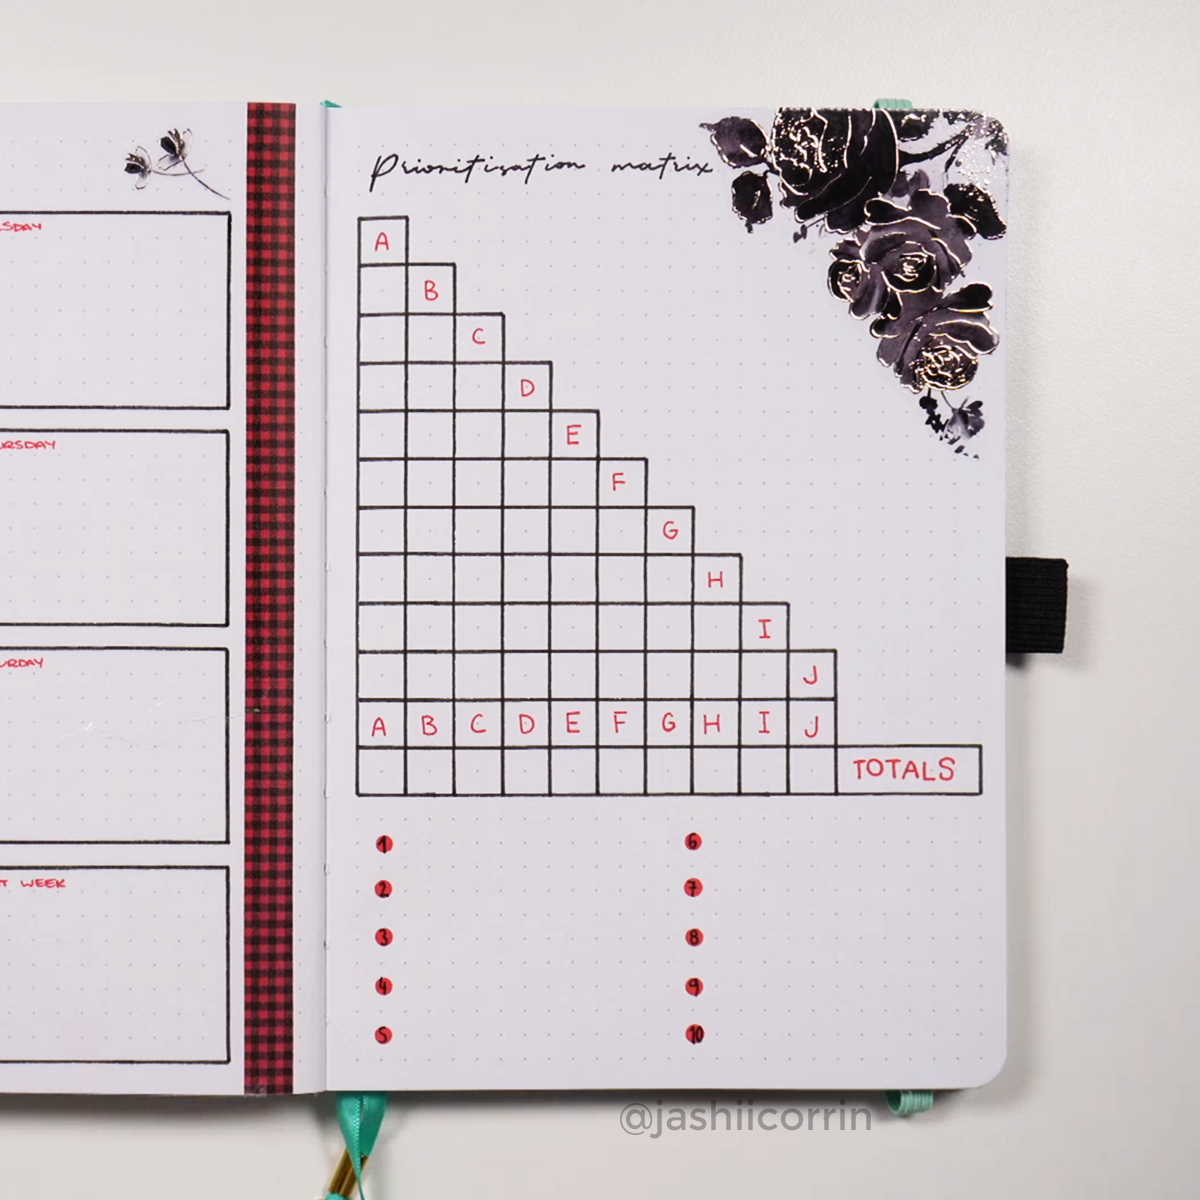 SDAY
URSDAY
URDAY
T WEEK
Prioritisation matrix
A
B
C
D
E
F
G
H
I
J
A B C D E F G H I J
TOTALS
1
2
3
4
5
6
7
8
9
10
@jashiicorrin